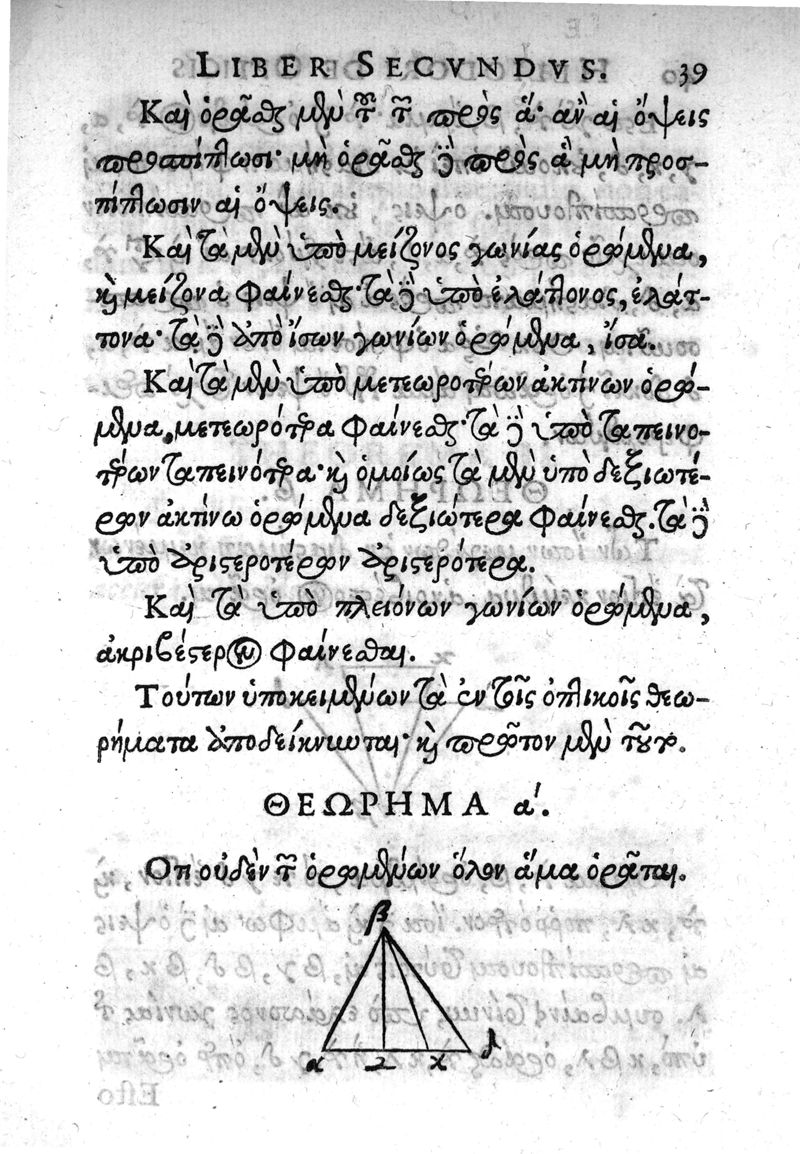 LIBER SECVNDVS. 39
Καὶ ὁρᾶσθαι μὲν τούτων τῶν πρὸς ἃ· ἂν αἱ ὄψεις
προσπίπτωσι· μὴ ὁρᾶσθαι δὲ πρὸς ἃ μὴ προσ-
πίπτωσιν αἱ ὄψεις.
Καὶ τὰ μὲν ὑπὸ μείζονος γωνίας ὁρώμενα,
καὶ μείζονα φαίνεσθαι· τὰ δὲ ὑπὸ ἐλάττονος, ἐλάτ-
τονα· τὰ δὲ ἀπὸ ἴσων γωνίων ὁρώμενα, ἴσα.
Καὶ τὰ μὲν ὑπὸ μετεωροτέρων ἀκτίνων ὁρώ-
μενα, μετεωρότερα φαίνεσθαι· τὰ δὲ ὑπὸ ταπεινο-
τέρων ταπεινότερα· καὶ ὁμοίως τὰ μὲν ὑπὸ δεξιωτέ-
ρων ἀκτίνω ὁρώμενα δεξιώτερα φαίνεσθαι. τὰ δὲ
ὑπὸ ἀριστεροτέρων ἀριστερότερα.
Καὶ τὰ ὑπὸ πλειόνων γωνίων ὁρώμενα,
ἀκριβέστερον φαίνεσθαι.
Τούτων ὑποκειμένων τὰ ἐν τοῖς ὀπτικοῖς θεω-
ρήματα ἀποδείκνυνται· καὶ πρῶτον μὲν τοῦτο.
ΘΕΩΡΗΜΑ α'.
Οτι οὐδὲν τῶν ὁρωμένων ὅλον ἅμα ὁρᾶται.
β
α γ κ δ